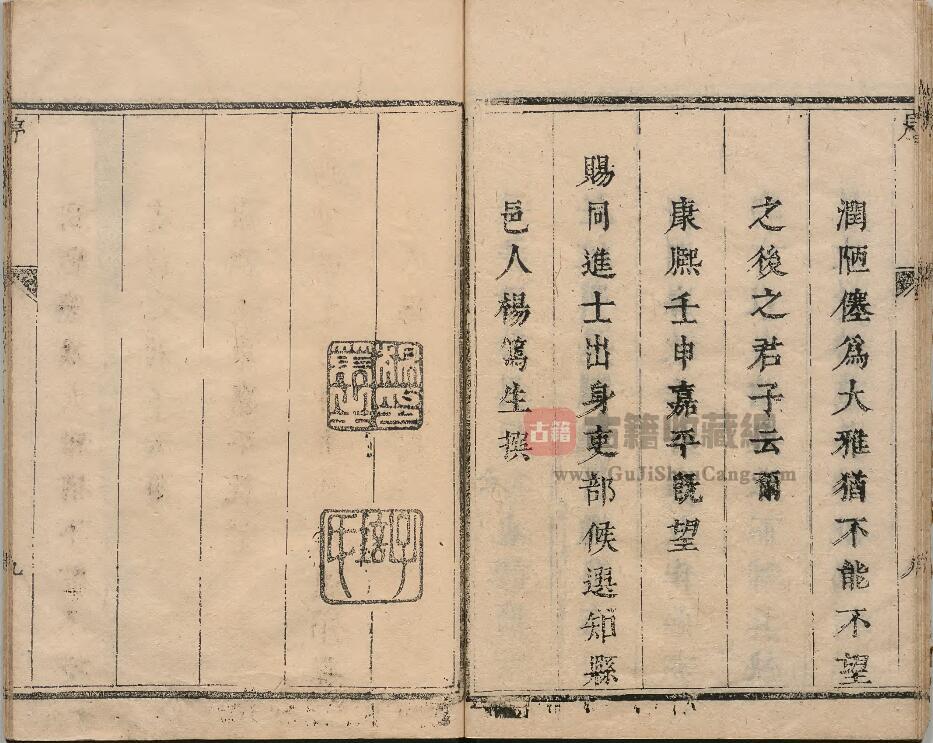 潤陋僿爲大雅猶不能不望
之後之君子云爾
康熙壬申嘉平旣望
賜同進士出身吏部候選知縣
邑人楊篤生撰
序
九
古籍
古籍收藏網
www.GuJiShouCang.com